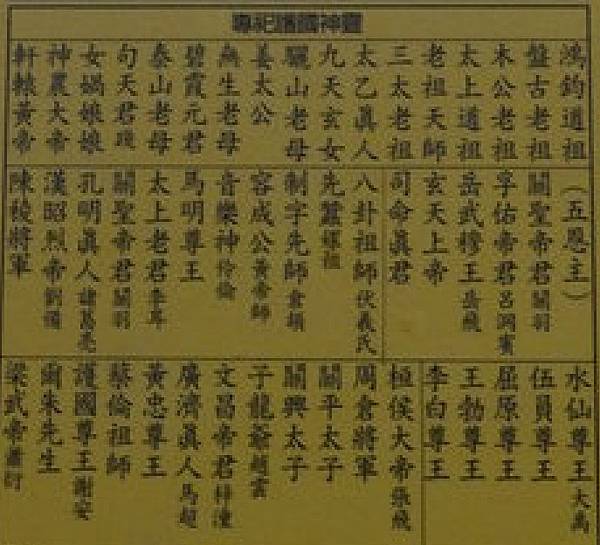 專祀譜國神靈
鴻鈞道祖
盤古老祖
木公老祖
太上道祖
老祖天師
三太老祖
太乙眞人
九天玄女
驪山老母
姜太公
無生老母
碧霞元君
泰山老母
句天君踐
女媧娘娘
神農大帝
軒轅黃帝
(五恩主)
關聖帝君關羽
孚佑帝君呂洞賓
岳武穆王岳飛
玄天上帝
司命眞君
八卦祖師伏羲氏
先蠶嫘祖
制字先師倉頡
容成公黃帝師
音樂神伶倫
馬明尊王
太上老君李耳
關聖帝君關羽
孔明眞人諸葛亮
漢昭烈帝劉備
陳稜將軍
水仙尊王大禹
伍員尊王
屈原尊王
王勃尊王
李白尊王
桓侯大帝張飛
周倉將軍
關平太子
關興太子
子龍爺趙雲
文昌帝君梓潼
廣濟眞人馬超
黃忠尊王
蔡倫祖師
護國尊王謝安
爾朱先生
梁武帝蕭衍